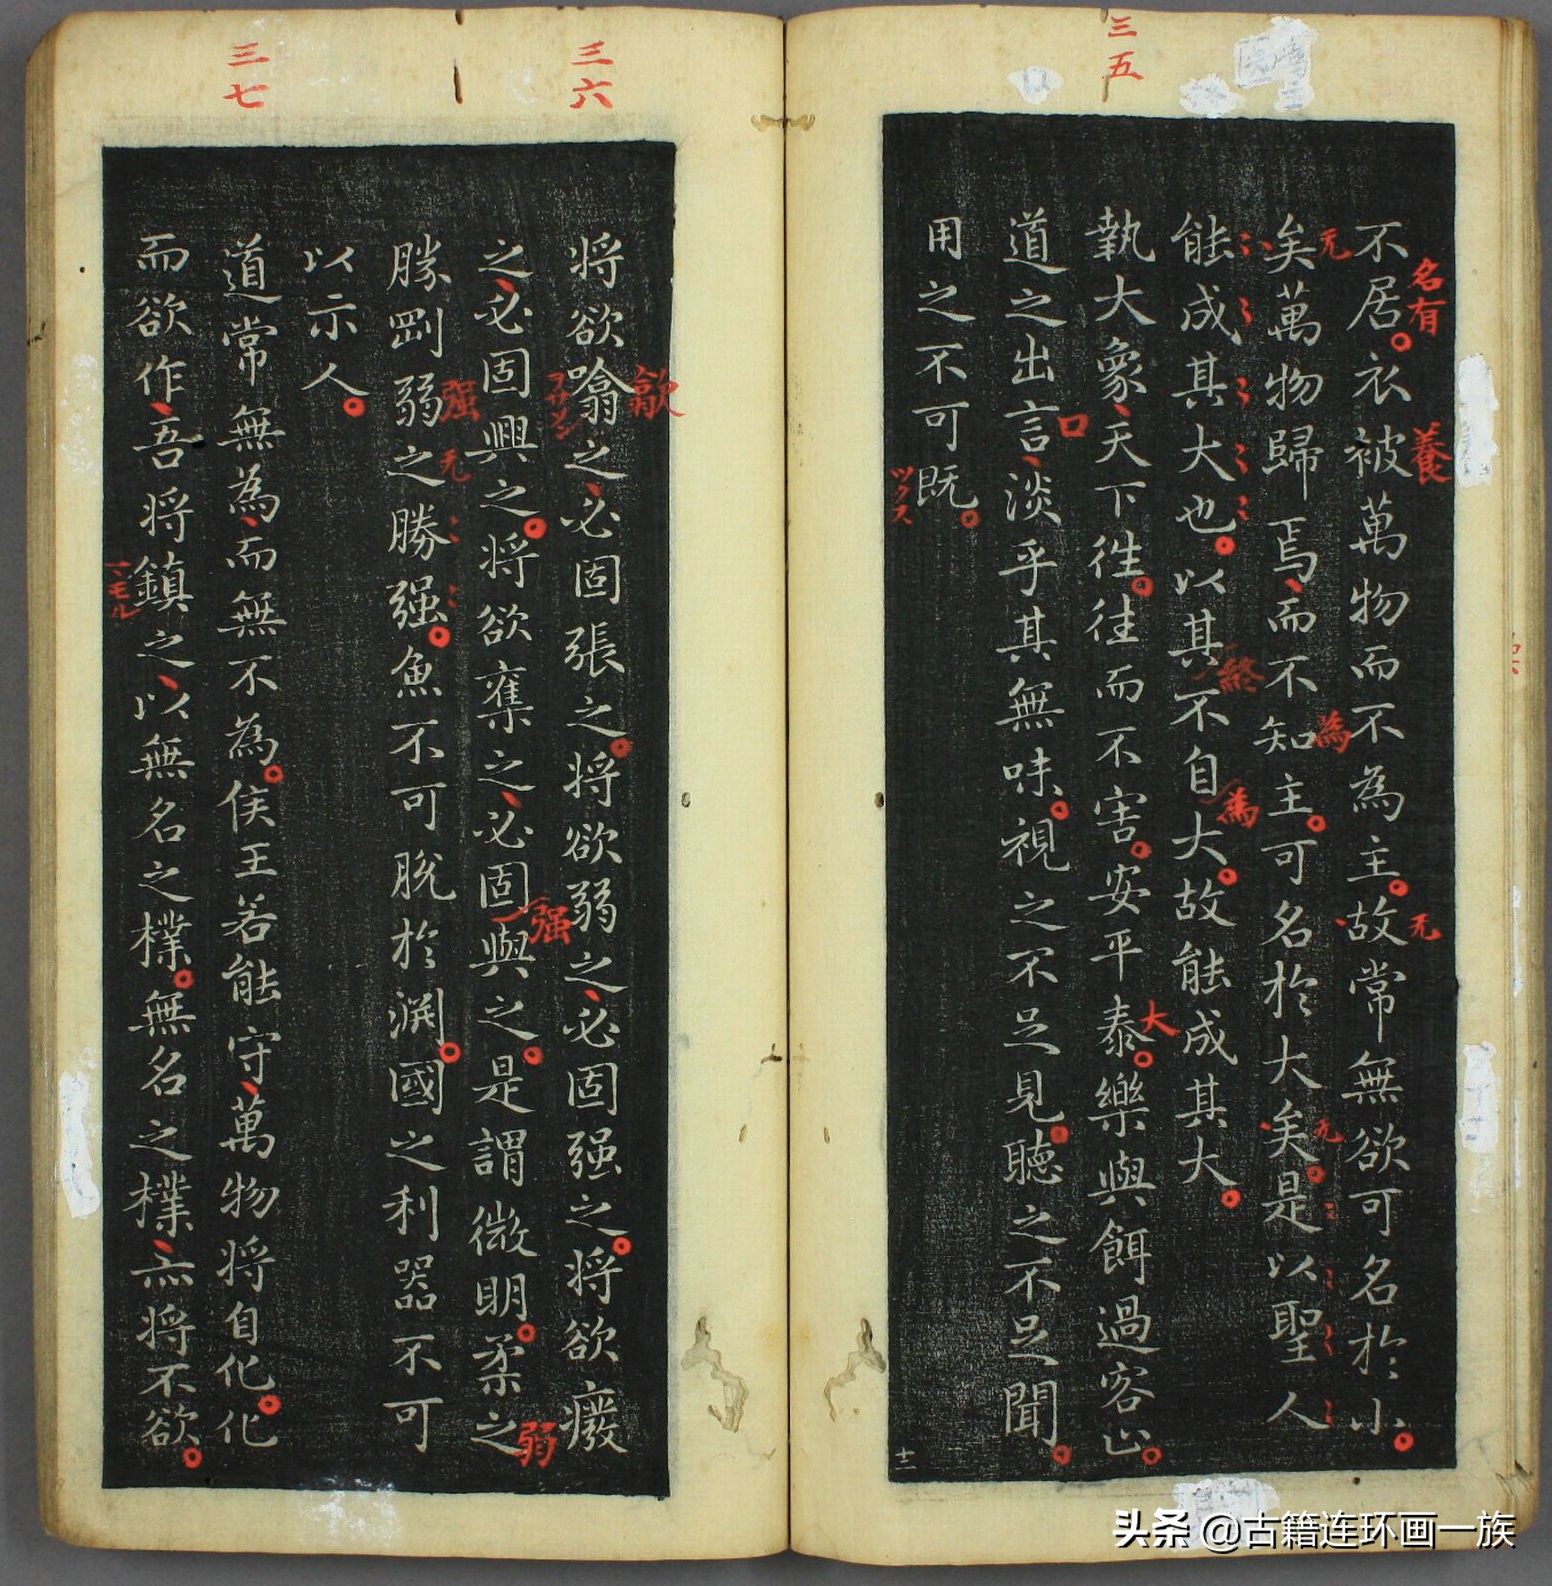 三五
名有
養
无
不居衣被萬物而不為主故常無欲可名於小
无
為
无
矣萬物歸焉而不知主可名於大矣是以聖人
終
為
能成其大也以其不自大故能成其大
大
執大象天下往往而不害安平泰樂與餌過客止
口
道之出言淡乎其無味視之不足見聽之不足聞
用之不可既
ツクス
十二
三六
歙
将欲噏之必固張之将欲弱之必固强之将欲癈
强
弱
之必固興之将欲奪之必固與之是謂微明柔之
强
无
勝剛弱之勝强魚不可脫於淵國之利器不可
以示人
三七
道常無為而無不為侯王若能守萬物将自化化
而欲作吾将鎮之以無名之樸無名之樸亦将不欲
头条 @古籍连环画一族